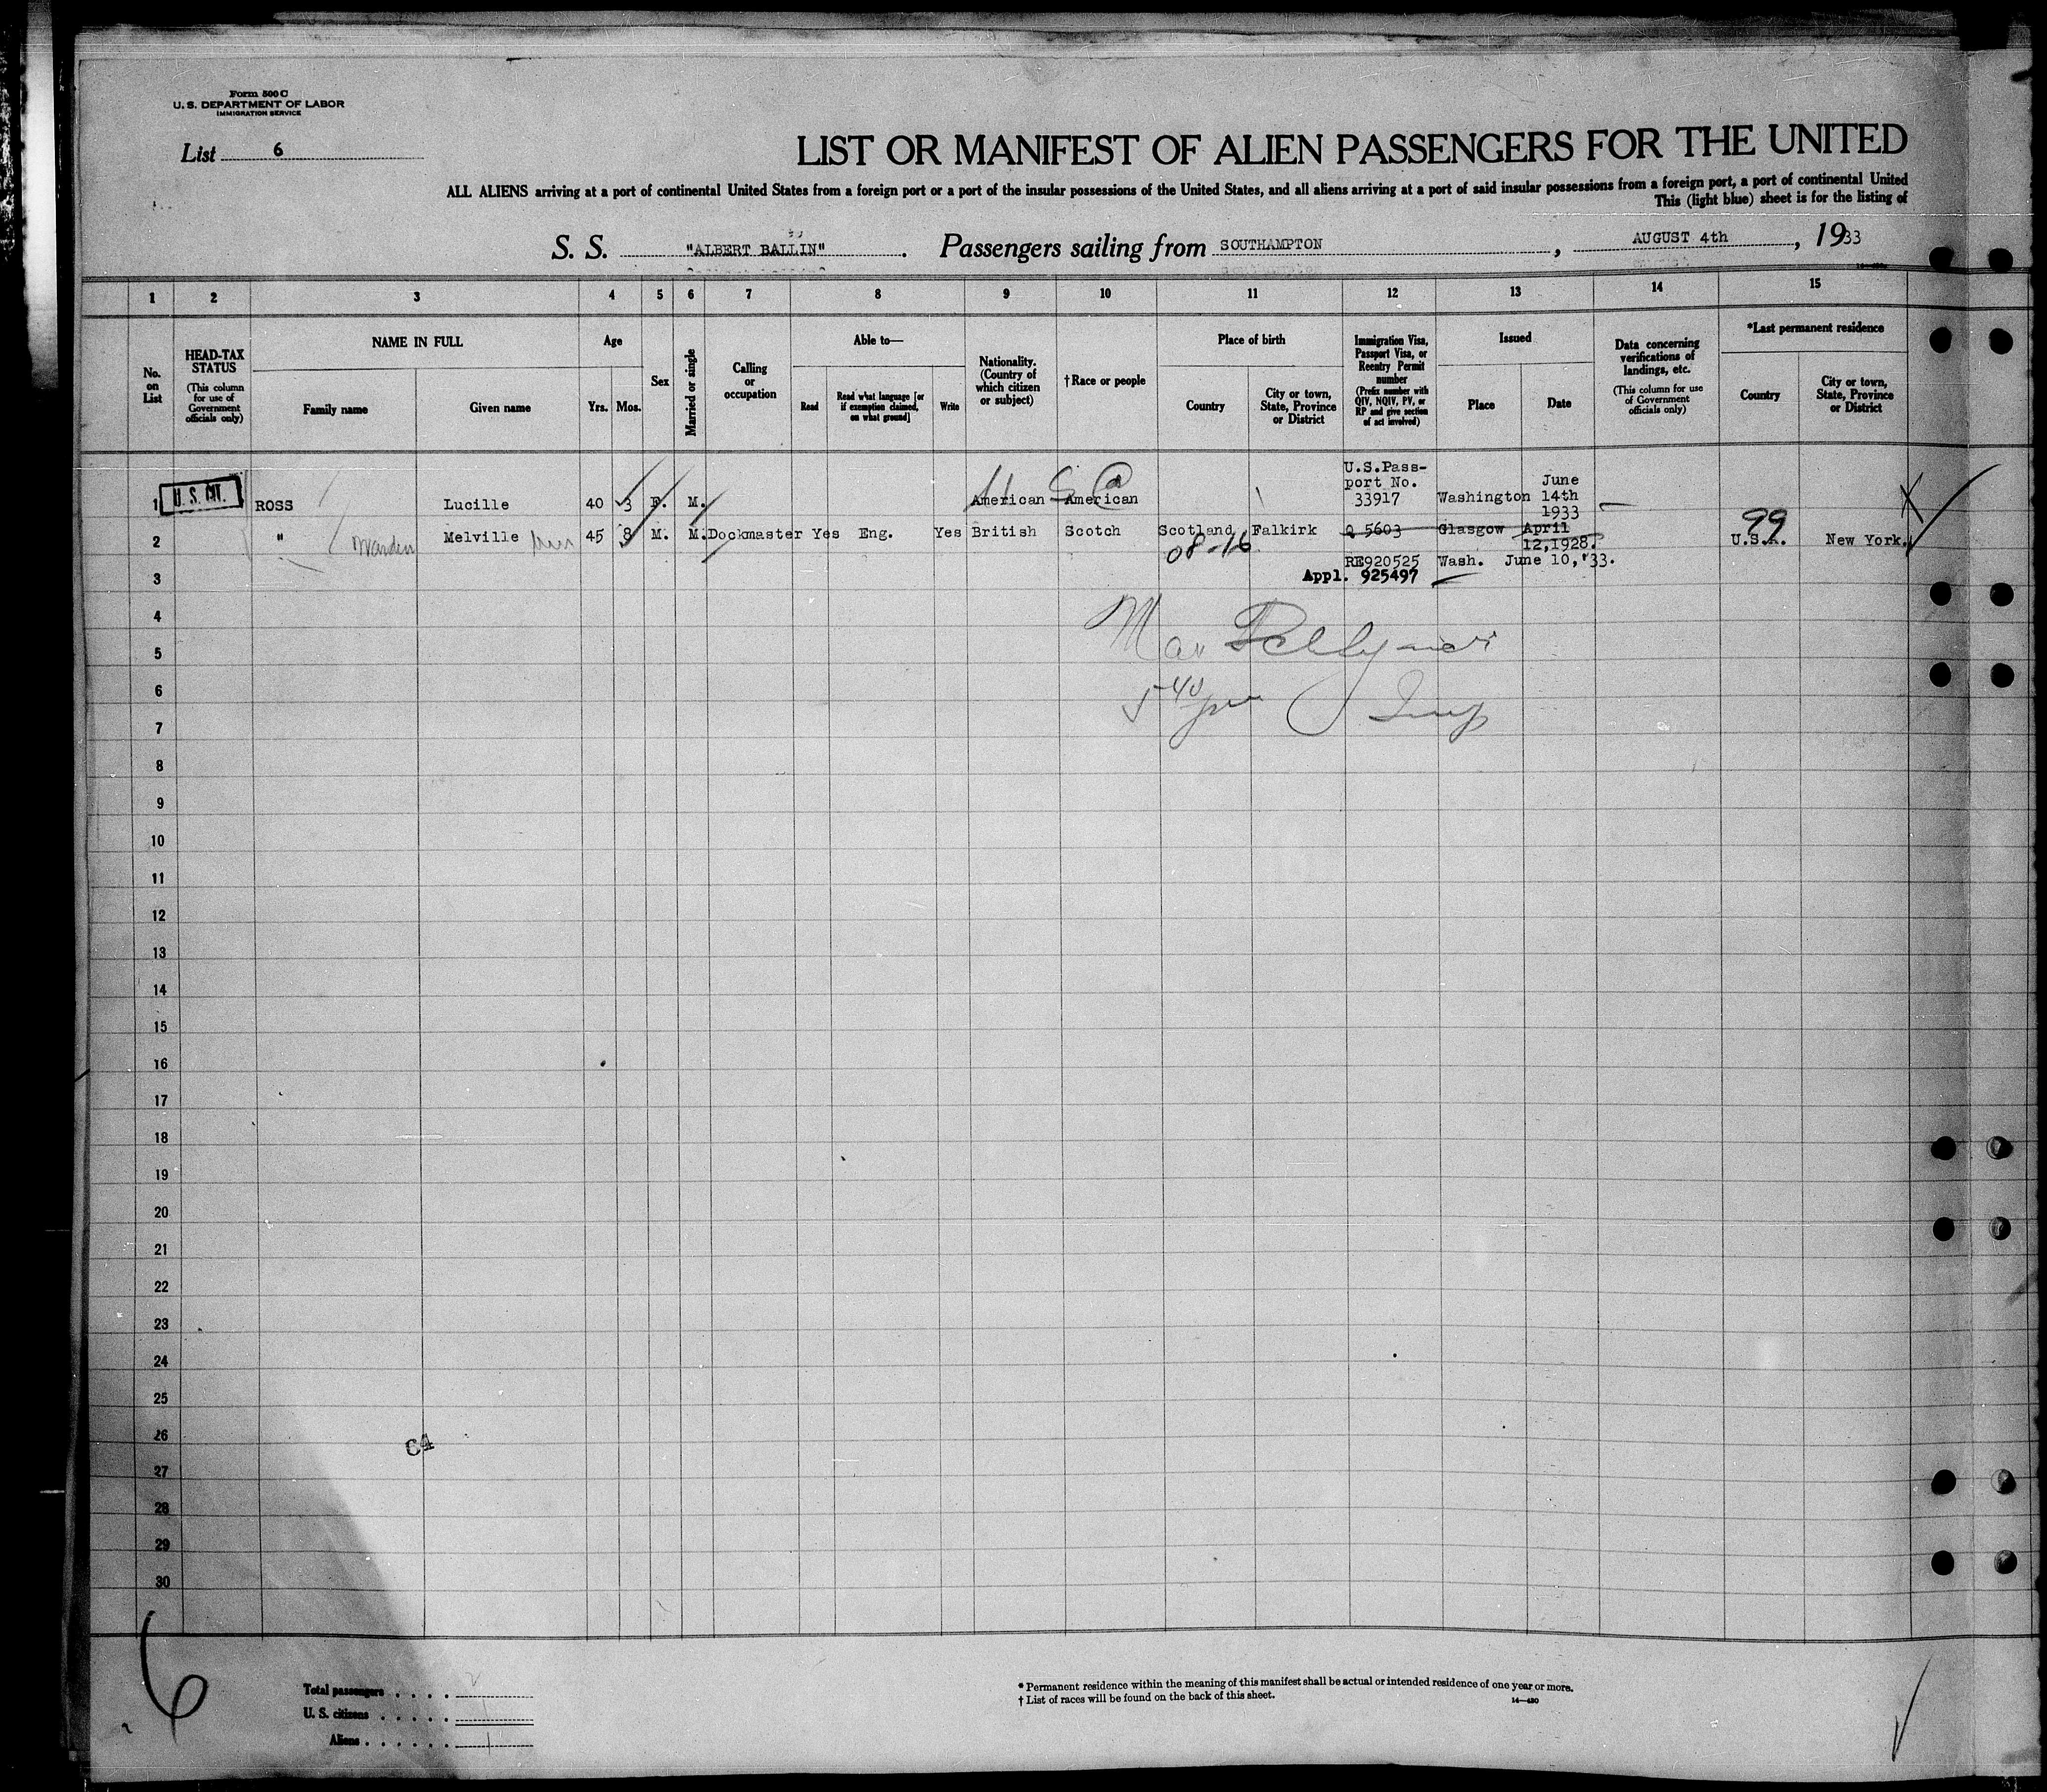 Form 500 C
U. S. DEPARTMENT OF LABOR
IMMIGRATION SERVICE
List 6
LIST OR MANIFEST OF ALIEN PASSENGERS FOR THE UNITED
ALL ALIENS arriving at a port of continental United States from a foreign port or a port of the insular possessions of the United States, and all aliens arriving at a port of said insular possessions from a foreign port, a port of continental United
This (light blue) sheet is for the listing of
S. S. "ALBERT BALLIN". Passengers sailing from SOUTHAMPTON, AUGUST 4th, 1933
1 2 3 4 5 6 7 8 9 10 11 12 13 14 15
No. on List
HEAD-TAX STATUS (This column for use of Government officials only)
NAME IN FULL
Family name Given name
Age
Yrs. Mos.
Sex
Married or single
Calling or occupation
Able to—
Read Read what language [or if exemption claimed, on what ground] Write
Nationality. (Country of which citizen or subject)
†Race or people
Place of birth
Country City or town, State, Province or District
Immigration Visa, Passport Visa, or Reentry Permit number (Prefix number with QIV, NQIV, PV, or RP and give section of act involved)
Issued
Place Date
Data concerning verifications of landings, etc. (This column for use of Government officials only)
*Last permanent residence
Country City or town, State, Province or District
1 U. S. CIT. ROSS Lucille 40 3 F. M. American American U.S.Pass-port No. 33917 Washington June 14th 1933
2 " Warden Melville 45 8 M. M. Dockmaster Yes Eng. Yes British Scotch Scotland Falkirk Q 5603 Glasgow April 12,1928. U.S.A. New York.
08-16
99
RE920525 Wash. June 10,'33.
3 Appl. 925497
4
5
6
5 40
7
8
9
10
11
12
13
14
15
16
17
18
19
20
21
22
23
24
25
26
64
27
28
29
30
6
Total passengers . . . . 2
U. S. citizens . . . . . 1
Aliens . . . . . . 1
* Permanent residence within the meaning of this manifest shall be actual or intended residence of one year or more.
† List of races will be found on the back of this sheet.
14—480